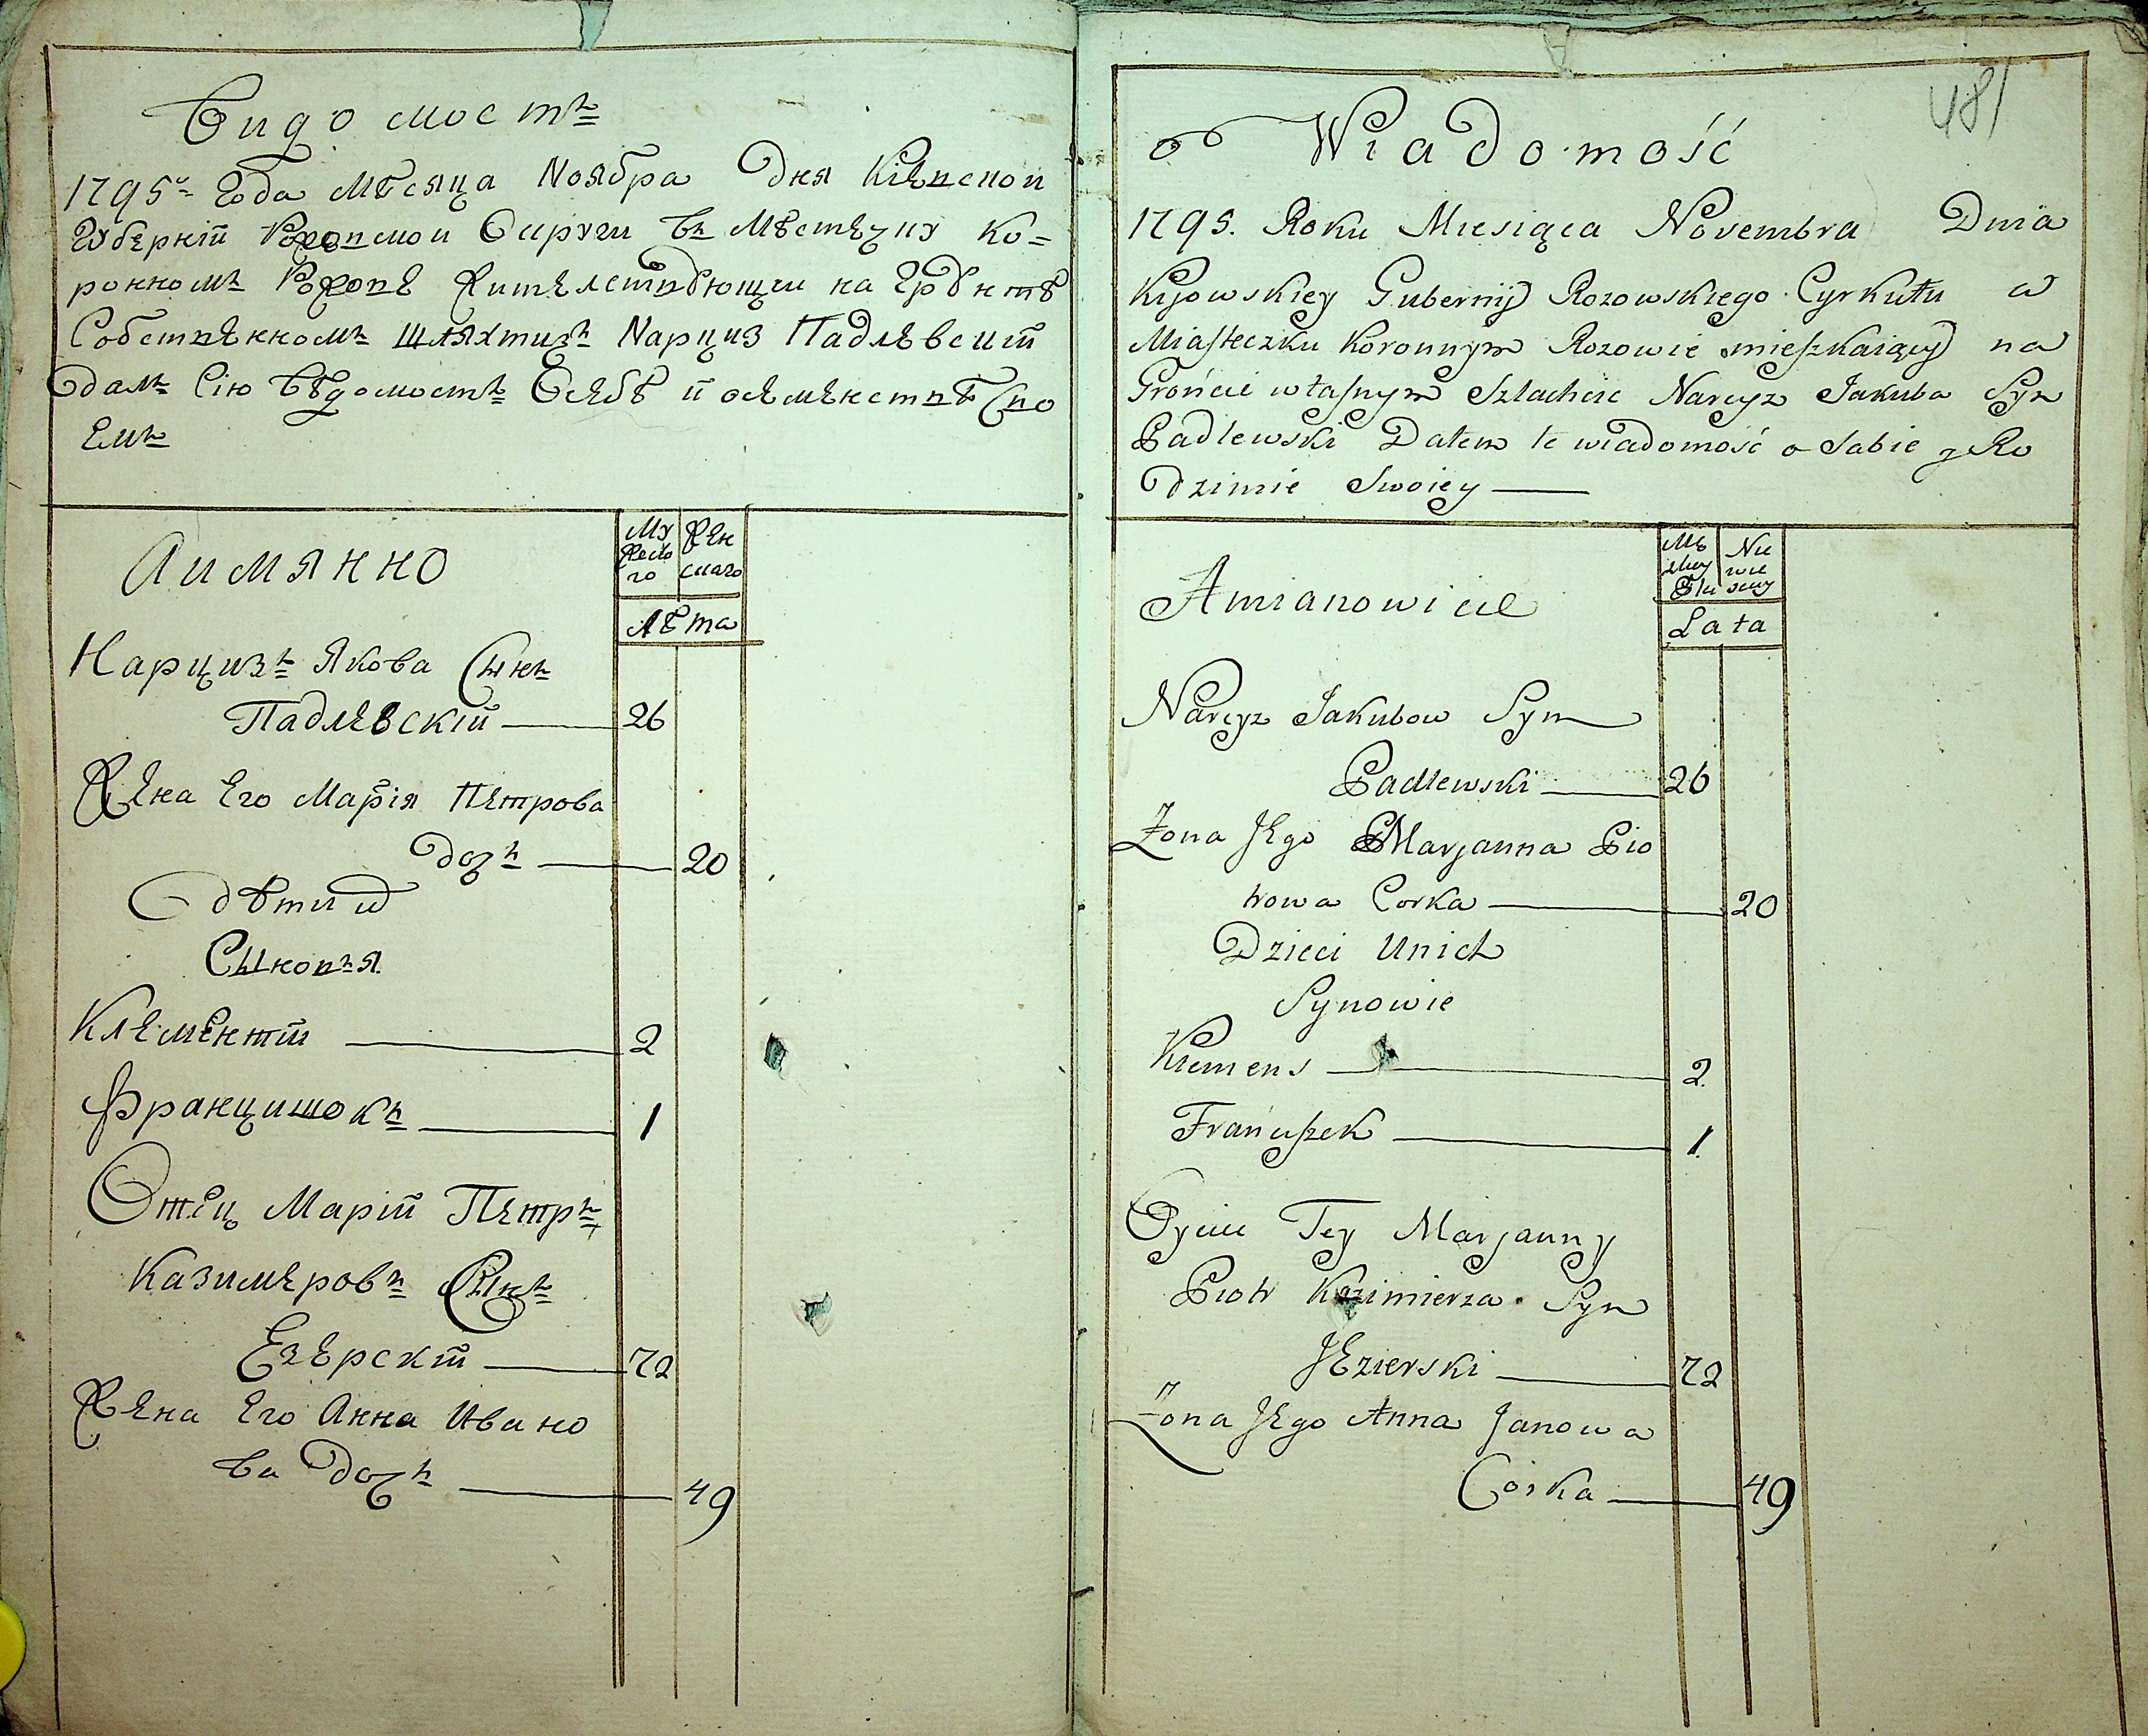 Видомость
1795г Года Месяца Ноября Дня Киевской
Губернiи Роховской Округи въ Местечку Ко=
ронномъ Рохове Жителствующи на Грунте
Собственномъ Шляхтичъ Нарциз Падлевский
Далъ Сiю Ведомость О себе и о семенстве Сво
емъ
Аимянно
Му
жеско
го
Жен
скаго
Лѣта
Нарцизъ Якова Сынъ
Падлевскiй 26
Жена Его Марiя Петрова
Дочъ 20
Дѣти
Сыновъя
Клементiй 2
Францишокъ 1
Отец Марiи Петръ
Казимеровъ Сынъ
Езерскiй 72
Жена Его Анна Ивано
ва Дочъ 49
481
Wiadomość
1795. Roku Miesiąca Novembra Dnia
Kijowskiey Gubernij Rozowskiego Cyrkułu w
Miasteczku Koronnym Rozowie mieszkaiący na
Grońcie własnym Szlachcic Narcyz Jakuba Syn
Padlewski Dałem te wiadomość o Sobie y Ro
dzinie Swoiey
Amianowicie
Mę
skey
Płci
Nie
wie
sciey
Lata
Narcyz Jakubow Syn
Padlewski 26
Żona JEgo Marjanna Pio
trowa Corka 20
Dzieci Unich
Synowie
Klemens 2.
Franciszek 1.
Oyciec Tey Marjanny
Piotr Kazimierza Syn
JEzierski 72
Żona JEgo Anna Janowa
Córka 49